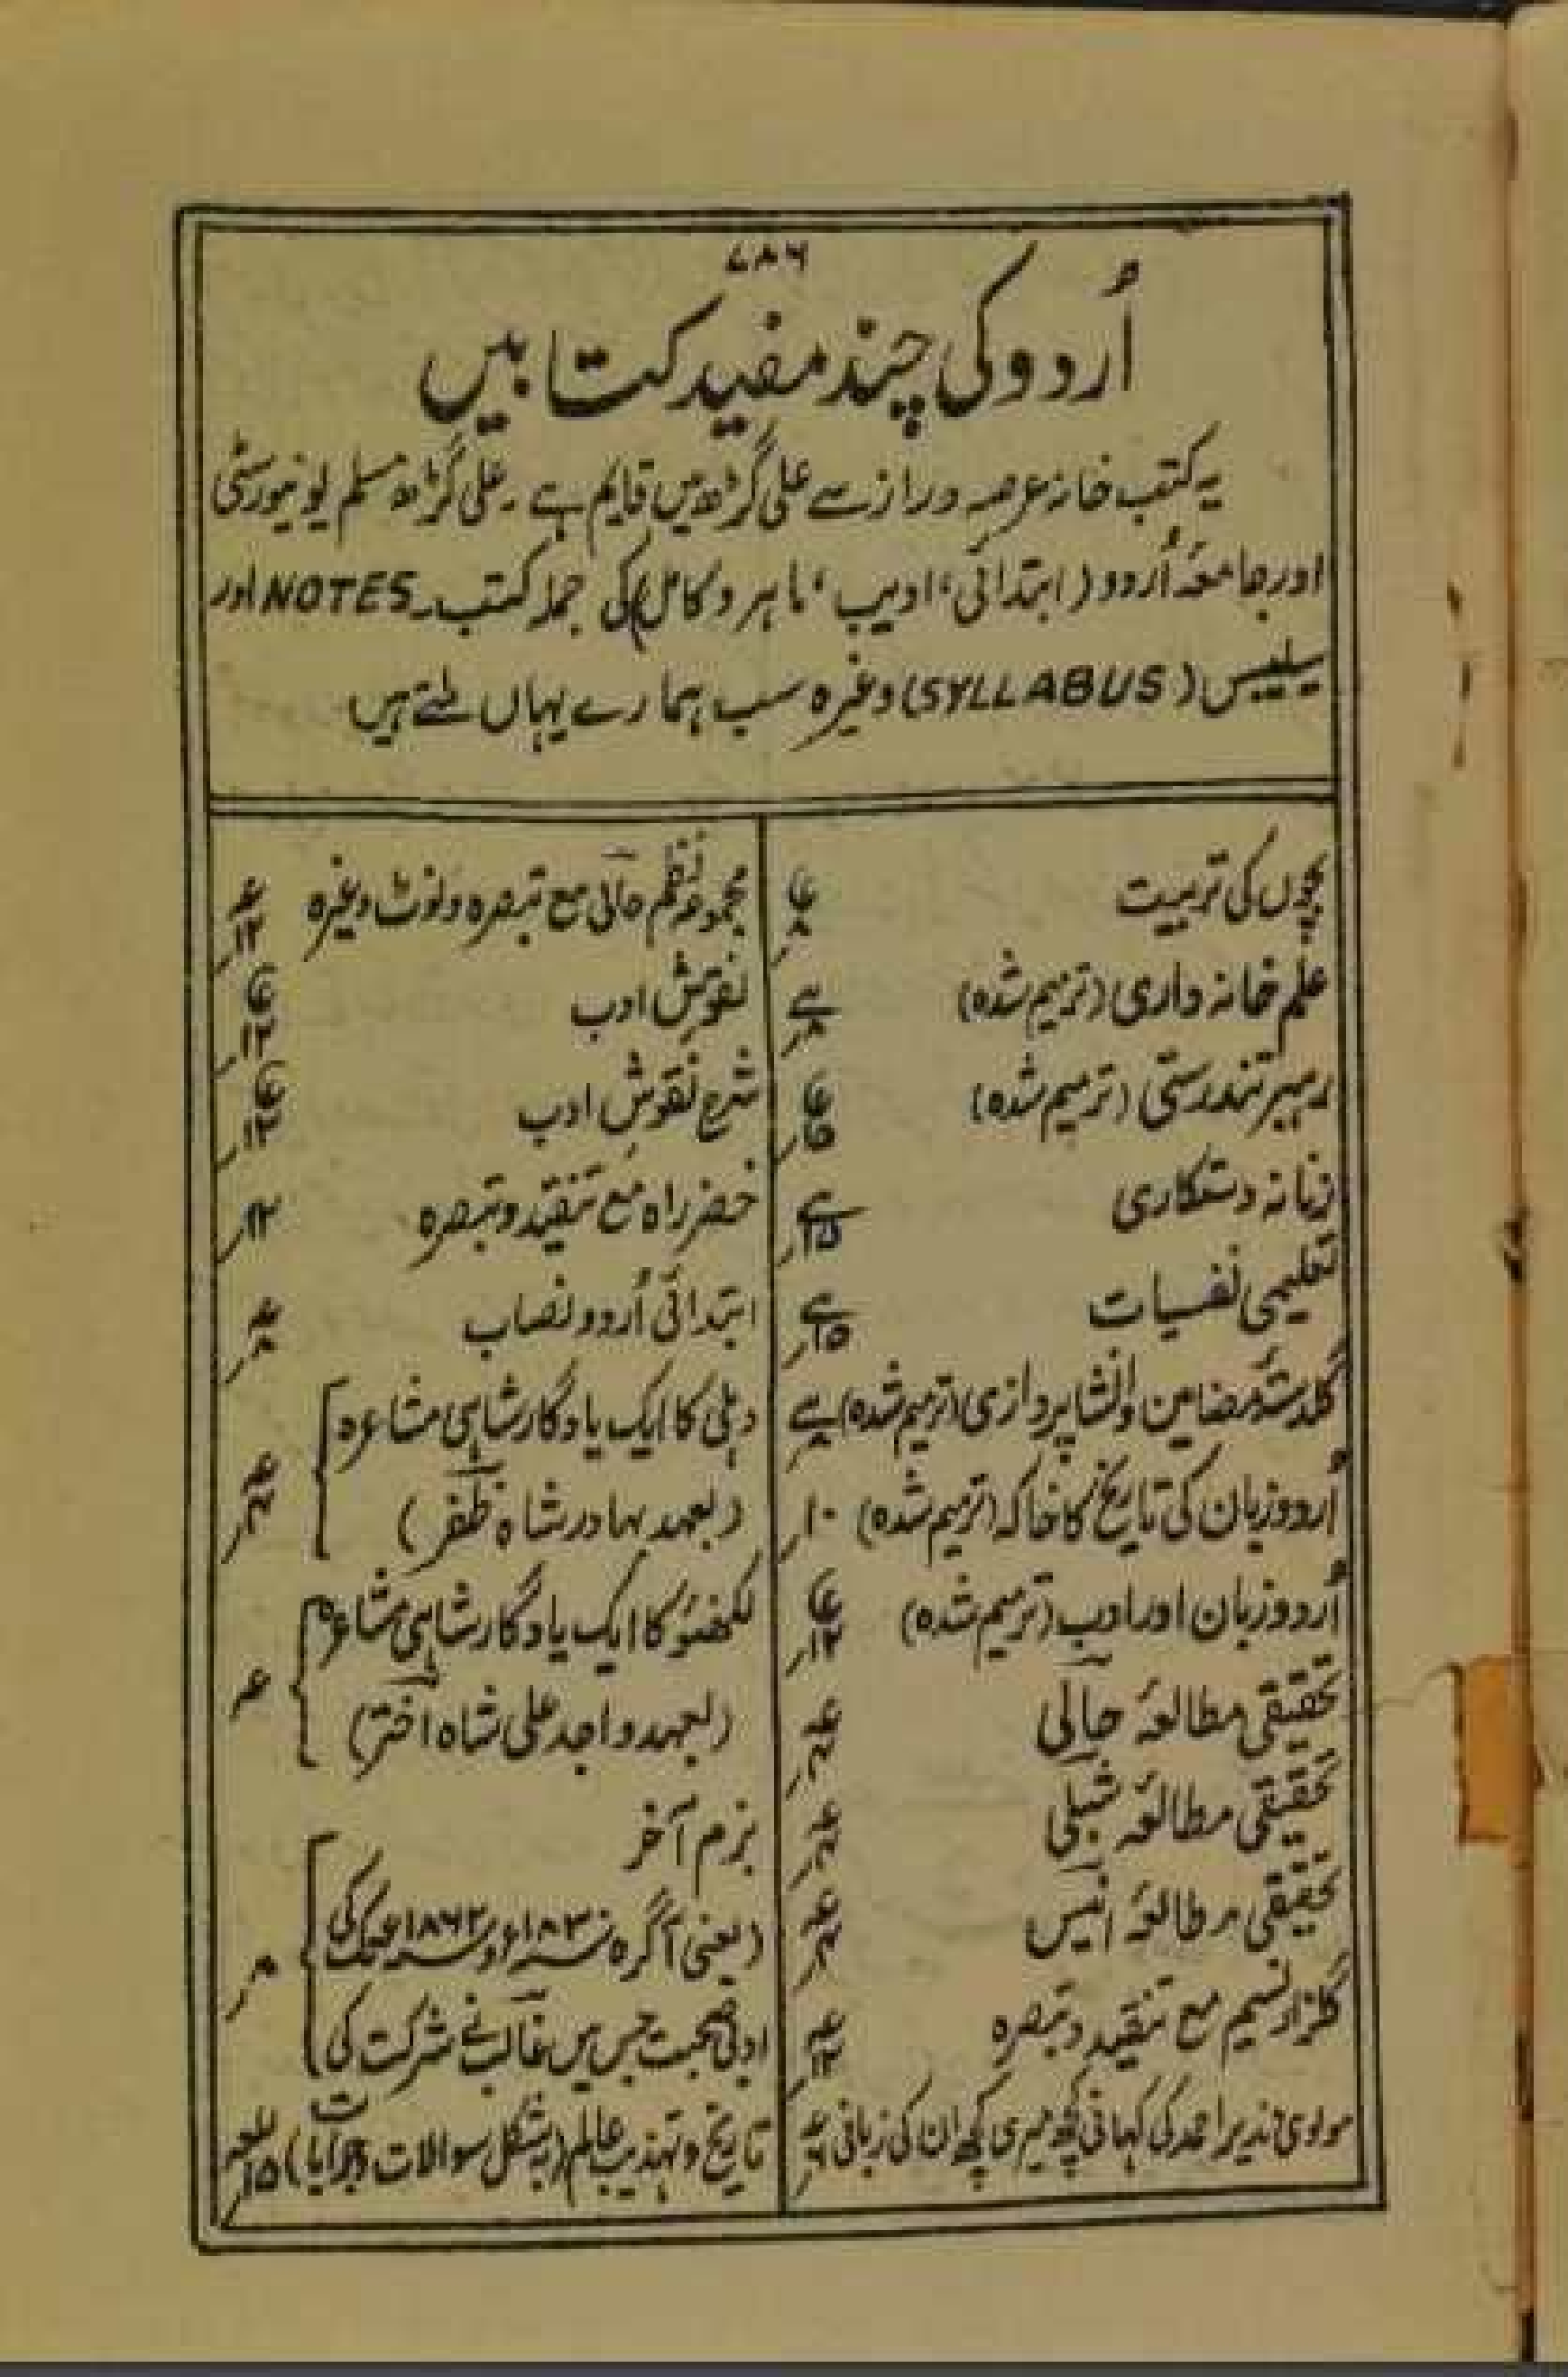 ۷۸۶
اُردو کی چند مفید کتابیں
یہ کتب خانہ عرصہ دراز سے علی گڑھ میں قایم ہے۔ علی گڑھ مسلم یونیورسٹی
اور جامعۂ اُردو (ابتدائی، ادیب، ماہر و کامل) کی جملہ کتب۔ NOTES اور
سیلیبس (SYLLABUS) وغیرہ سب ہمارے یہاں ملتے ہیں
بچوں کی تربیت
علم خانہ داری (ترمیم شدہ)
رہبر تندرستی (ترمیم شدہ)
زنانہ دستکاری
تعلیمی نفسیات
گلدستۂ مضامین و انشا پردازی (ترمیم شدہ)
اُردو زبان کی تاریخ کا خاکہ (ترمیم شدہ) ۱۰؍
اُردو زبان اور ادب (ترمیم شدہ)
تحقیقی مطالعۂ حالی
تحقیقی مطالعۂ شبلی
تحقیقی مطالعۂ انیس
گلزار نسیم مع تنقید و تبصرہ
مولوی نذیر احمد کی کہانی کچھ میری کچھ ان کی زبانی
مجموعہ نظم حالی مع تبصرہ و نوٹ وغیرہ
نقوش ادب
شرح نقوشِ ادب
خضر راہ مع تنقید و تبصرہ ۱۲؍
ابتدائی اُردو نصاب
دہلی کا ایک یادگار شاہی مشاعرہ
(بعہد بہادر شاہ ظفر)
لکھنؤ کا ایک یادگار شاہی مشاعرہ
(بعہد واجد علی شاہ اختر)
بزم آخر
(یعنی آگرہ کی
ادبی صحبت جس میں غالب نے شرکت کی ۸؍
تاریخ و تہذیب عالم (بہ شکل سوالات و جوابات)